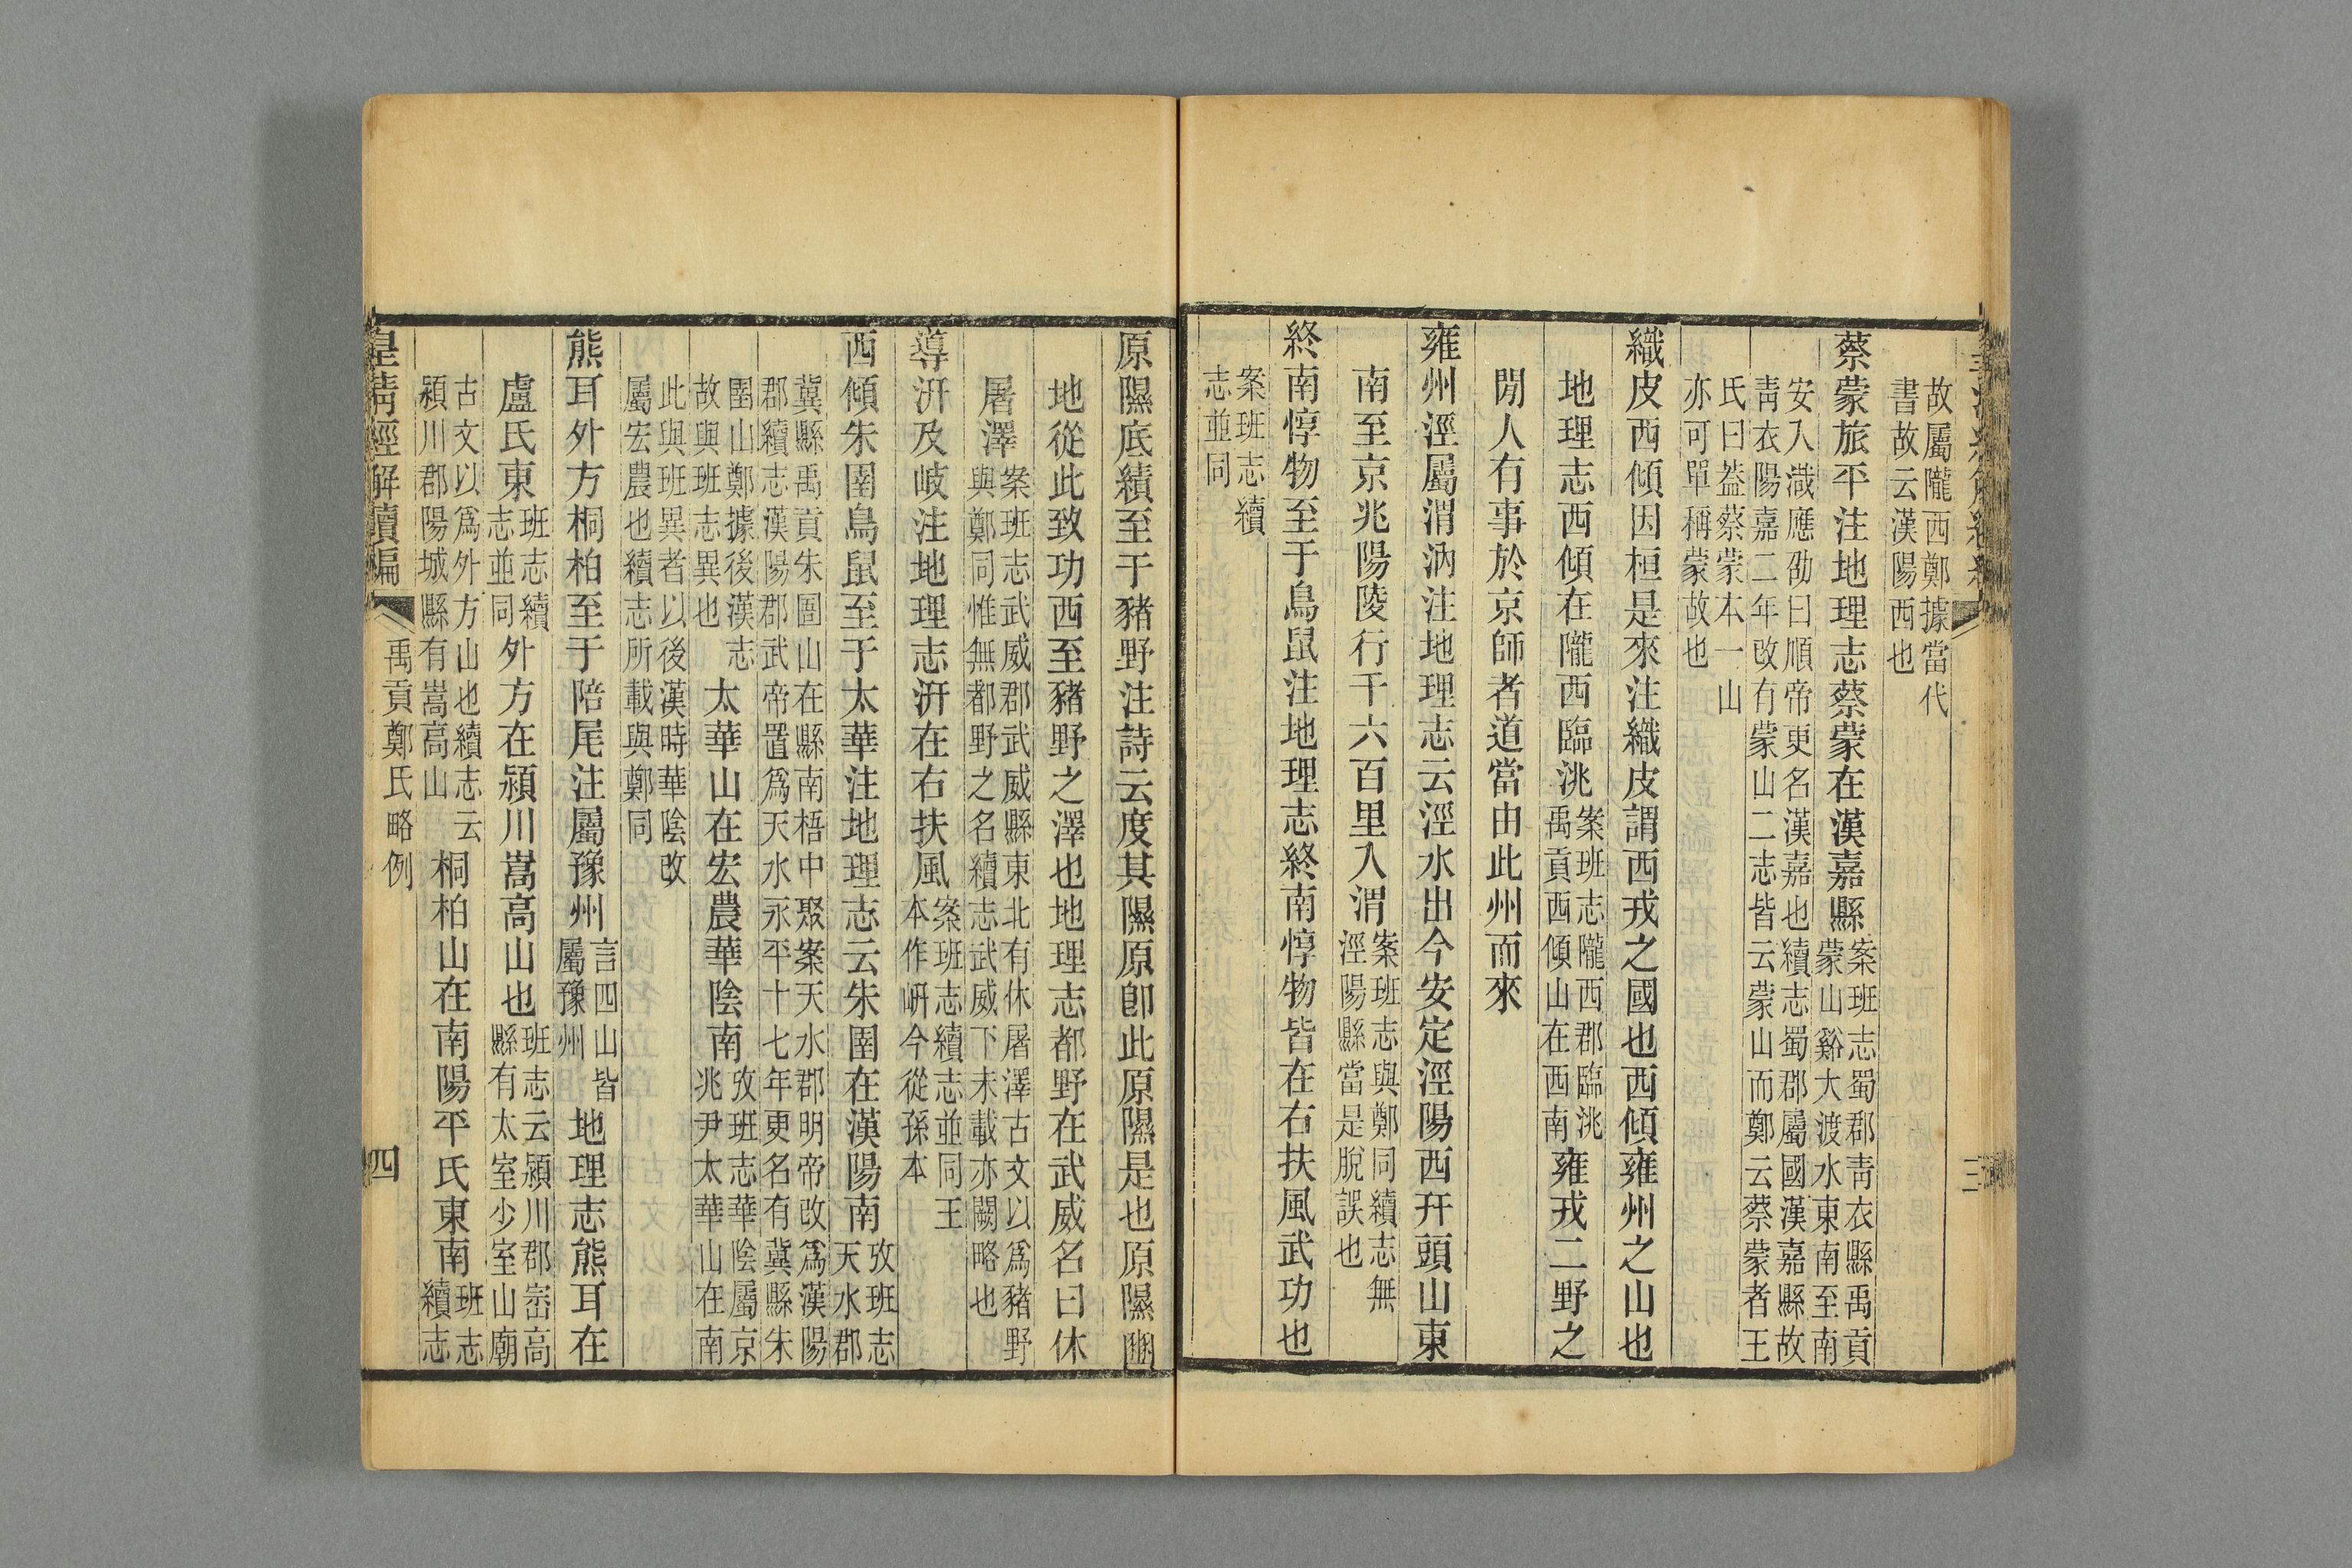 故屬隴西鄭據當代
書故云漢陽西也
蔡蒙旅平注地理志蔡蒙在漢嘉縣案班志蜀郡青衣縣禹貢
蒙山谿大渡水東南至南
安入渽應劭曰順帝更名漢嘉也續志蜀郡屬國漢嘉縣故
青衣陽嘉二年改有蒙山二志皆云蒙山而鄭云蔡蒙者王
氏曰葢蔡蒙本一山
亦可單稱蒙故也
織皮西傾因桓是來注織皮謂西戎之國也西傾雍州之山也
地理志西傾在隴西臨洮案班志隴西郡臨洮
禹貢西傾山在西南雍戎二野之
閒人有事於京師者道當由此州而來
雍州涇屬渭汭注地理志云涇水出今安定涇陽西幵頭山東
南至京兆陽陵行千六百里入渭案班志與鄭同續志無
涇陽縣當是脫誤也
終南惇物至于鳥鼠注地理志終南惇物皆在右扶風武功也
案班志續
志並同
三
原隰底績至于豬野注詩云度其隰原卽此原隰是也原隰豳
地從此致功西至豬野之澤也地理志都野在武威名曰休
屠澤案班志武威郡武威縣東北有休屠澤古文以爲豬野
與鄭同惟無都野之名續志武威下未載亦闕略也
導汧及岐注地理志汧在右扶風案班志續志並同王
本作岍今從孫本
西傾朱圉鳥鼠至于太華注地理志云朱圉在漢陽南攷班志
天水郡
冀縣禹貢朱圄山在縣南梧中聚案天水郡明帝改爲漢陽
郡續志漢陽郡武帝置爲天水永平十七年更名有冀縣朱
圉山鄭據後漢志
故與班志異也太華山在宏農華陰南攷班志華陰屬京
兆尹太華山在南
此與班異者以後漢時華陰改
屬宏農也續志所載與鄭同
熊耳外方桐柏至于陪尾注屬豫州言四山皆
屬豫州地理志熊耳在
盧氏東班志續
志並同外方在潁川嵩高山也班志云潁川郡崈高
縣有太室少室山廟
古文以爲外方山也續志云
潁川郡陽城縣有嵩高山桐柏山在南陽平氏東南班志
續志
皇清經解續編
禹貢鄭氏略例
四